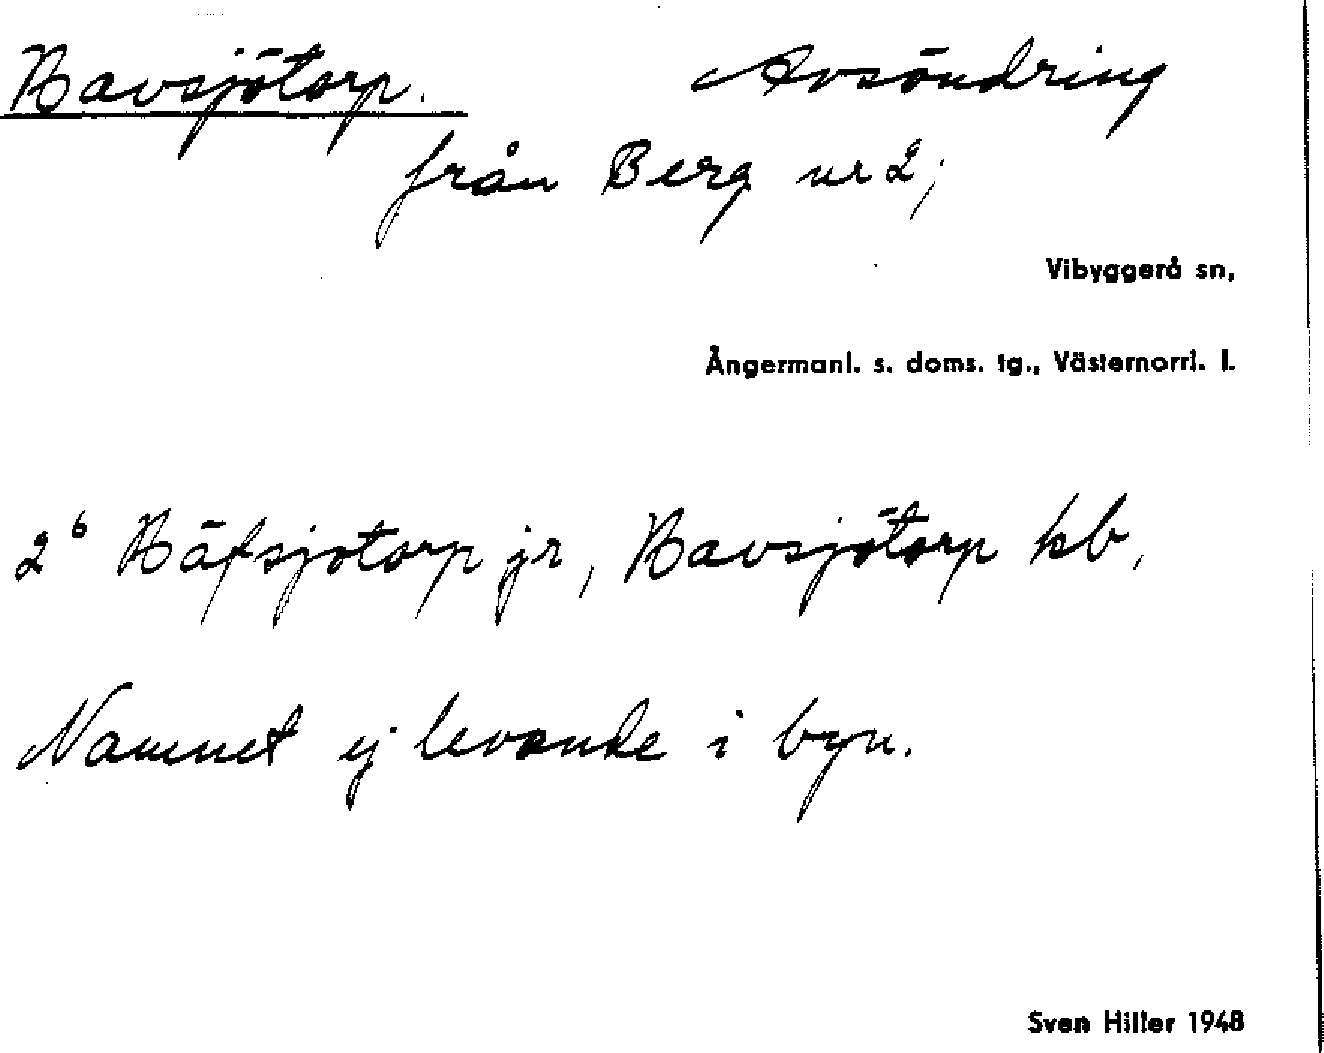 Bavsjötorp. Avsöndring
från Berg nr 2;
Vibyggerå sn,
Ångermanl. s. doms. tg., Västernorrl. l.
2⁶ Bäfsjötorp jr, Bavsjötorp kb,
Namnet ej levande i byn.
Sven Hiller 1948